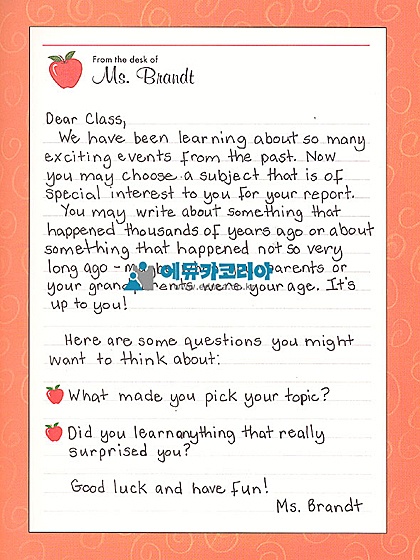 From the desk of
Ms. Brandt
Dear Class,
We have been learning about so many
exciting events from the past. Now
you may choose a subject that is of
special interest to you for your report.
You may write about something that
happened thousands of years ago or about
something that happened not so very
long ago - parents or
에듀카코리아
your were your age. It's
up to you!
Here are some questions you might
want to think about:
What made you pick your topic?
Did you learn anything that really
surprised you?
Good luck and have fun!
Ms. Brandt